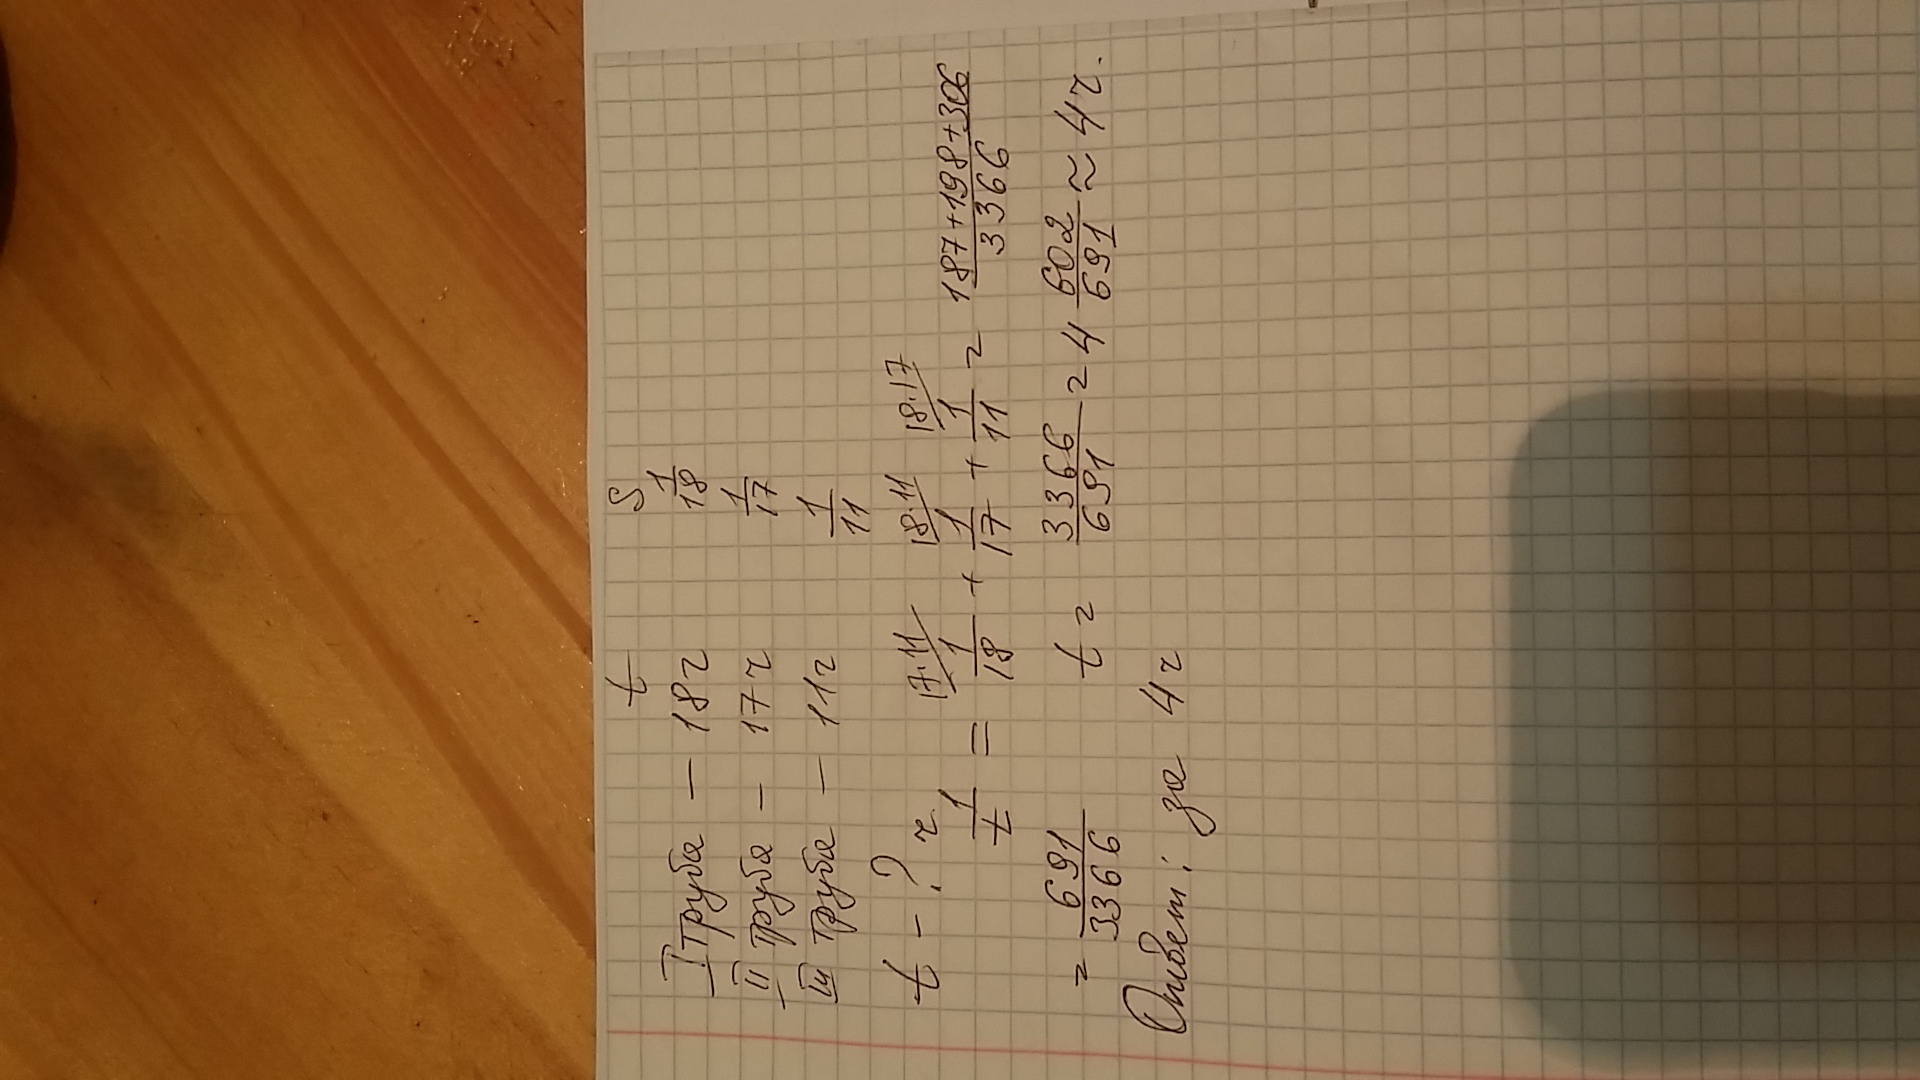 t S
I труба – 18ч 1/18
II труба – 17ч 1/17
III труба – 11ч 1/11
t – ? ч.
1/t = 1/18 (17·11) + 1/17 (18·11) + 1/11 (18·17) = 187+198+306/3366
= 691/3366 t = 3366/691 = 4 602/691 ≈ 4ч.
Ответ: за 4ч